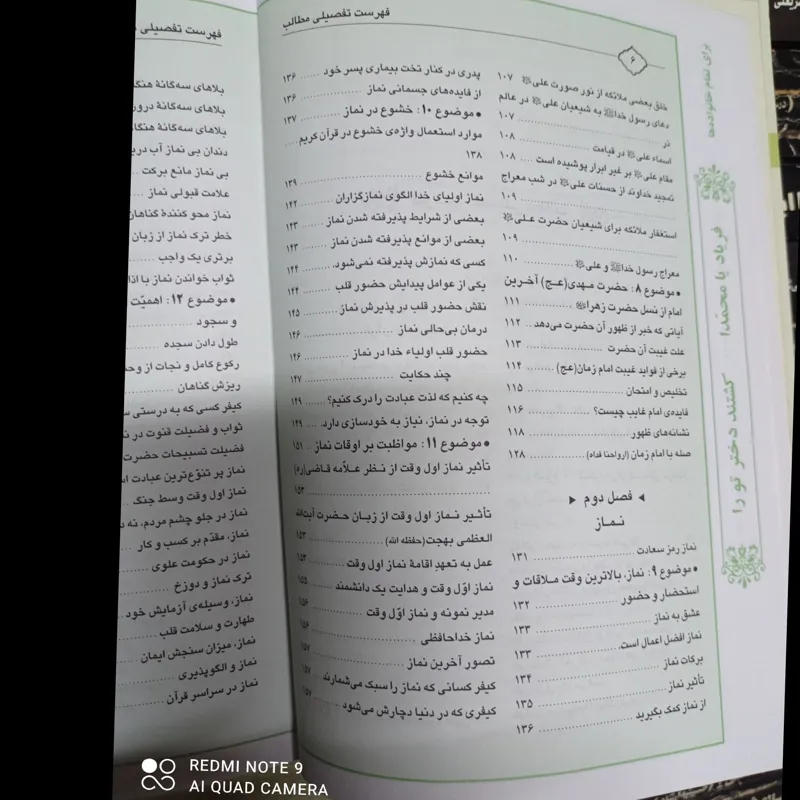 فهرست تفصیلی مطالب
۶
خلق بعضی ملائکه از نور صورت علی ۱۰۷
دعای رسول خدا به شیعیان علی در عالم
ذر ۱۰۷
اسماء علی در قیامت ۱۰۸
مقام علی بر غیر ابرار پوشیده است ۱۰۸
تمجید خداوند از حسنات علی در شب معراج
۱۰۹
استغفار ملائکه برای شیعیان حضرت علی
۱۰۹
معراج رسول خدا و علی ۱۱۰
• موضوع ۸: حضرت مهدی(عج) آخرین
امام از نسل حضرت زهرا ۱۱۱
آیاتی که خبر از ظهور آن حضرت می‌دهد ۱۱۲
علت غیبت آن حضرت ۱۱۳
برخی از فواید غیبت امام زمان(عج) ۱۱۴
تخلیص و امتحان ۱۱۵
فایده‌ی امام غایب چیست؟ ۱۱۶
نشانه‌های ظهور ۱۱۸
صله با امام زمان (ارواحنا فداه) ۱۲۸
فصل دوم
نماز
نماز رمز سعادت ۱۳۱
• موضوع ۹: نماز، بالاترین وقت ملاقات و
استحضار و حضور ۱۳۲
عشق به نماز ۱۳۳
نماز افضل اعمال است. ۱۳۳
برکات نماز ۱۳۴
تأثیر نماز ۱۳۵
از نماز کمک بگیرید ۱۳۶
پدری در کنار تخت بیماری پسر خود ۱۳۶
از فایده‌های جسمانی نماز ۱۳۶
• موضوع ۱۰: خشوع در نماز ۱۳۷
موارد استعمال واژه‌ی خشوع در قرآن کریم
۱۳۸
موانع خشوع ۱۳۹
نماز اولیای خدا الگوی نمازگزاران ۱۴۲
بعضی از شرایط پذیرفته شدن نماز ۱۴۳
بعضی از موانع پذیرفته شدن نماز ۱۴۳
کسی که نمازش پذیرفته نمی‌شود. ۱۴۴
یکی از عوامل پیدایش حضور قلب ۱۴۴
نقش حضور قلب در پذیرش نماز ۱۴۵
درمان بی‌حالی نماز ۱۴۶
حضور قلب اولیاء خدا در نماز ۱۴۶
چند حکایت ۱۴۷
چه کنیم که لذت عبادت را درک کنیم؟ ۱۴۹
توجه در نماز، نیاز به خودسازی دارد. ۱۴۹
• موضوع ۱۱: مواظبت بر اوقات نماز ۱۵۱
تأثیر نماز اول وقت از نظر علّامه قاضی(ره)
۱۵۳
تأثیر نماز اول وقت از زبان حضرت آیت‌الله
العظمی بهجت(حفظه الله) ۱۵۳
عمل به تعهد اقامهٔ نماز اول وقت ۱۵۳
نماز اوّل وقت و هدایت یک دانشمند ۱۵۵
مدیر نمونه و نماز اوّل وقت ۱۵۶
نماز خداحافظی ۱۵۶
تصور آخرین نماز ۱۵۷
کیفر کسانی که نماز را سبک می‌شمارند ۱۵۷
کیفری که در دنیا دچارش می‌شود ۱۵۷
برای تمام خانواده‌ها
فریاد یا محمّدا
کشتند دختر تو را
فهرست تفصیلی
بلاهای سه‌گانهٔ هنگا
بلاهای سه‌گانهٔ درور
بلاهای سه‌گانهٔ هنگا
دندان بی نماز آب دری
بی نماز مانع برکت
علامت قبولی نماز
نماز محو کنندهٔ گناهان
خطر ترک نماز از زبان
برتری یک واجب
ثواب خواندن نماز با اذا
• موضوع ۱۲: اهمیّت
و سجود
طول دادن سجده
رکوع کامل و نجات از وح
ریزش گناهان
کیفر کسی که به درستی س
ثواب و فضیلت قنوت در ن
فضیلت تسبیحات حضرت
نماز پر تنوّع‌ترین عبادت ا
نماز اول وقت وسط جنگ
نماز در جلو چشم مردم، نه د
نماز، مقدّم بر کسب و کار
نماز در حکومت علوی
ترک نماز و دوزخ
نماز، وسیله‌ی آزمایش خود
طهارت و سلامت قلب
نماز، میزان سنجش ایمان
نماز و الگوپذیری
نماز در سراسر قرآن
REDMI NOTE 9
AI QUAD CAMERA